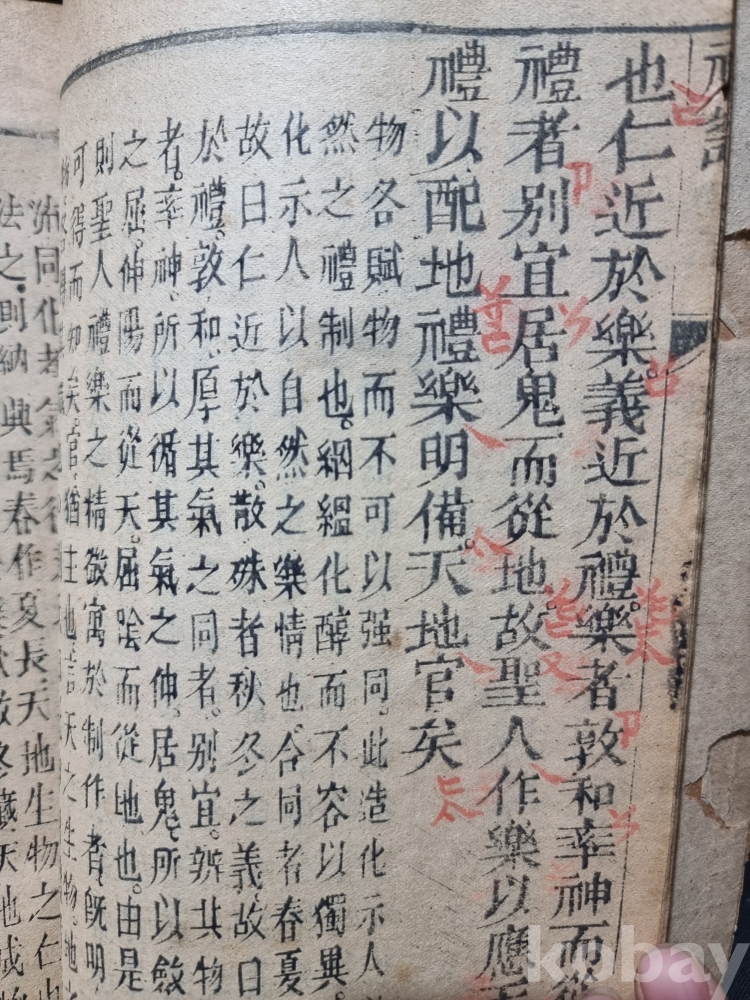 也仁近於樂。義近於禮。樂者敦和率神而從
禮者別宜居鬼而從地故聖人作樂以應天
禮以配地禮樂明備。天地官矣
物各賦物而不可以强同。此造化示人
然之禮制也。絪縕化醇而不容以獨異。
化示人以自然之樂情也。合同者春夏
故曰仁近於樂。散殊者秋冬之義。故曰
於禮。敦和。厚其氣之同者。別宜。辨其物
者。率神。所以循其氣之伸。居鬼。所以斂
之屈。伸陽而從天。屈陰而從地也。由是
則聖人禮樂之精微寓於制作者。旣明
可得而知矣。官。猶主也。言天之生物。地
同化者氣之
春作夏長。天地生物之仁也
kobay